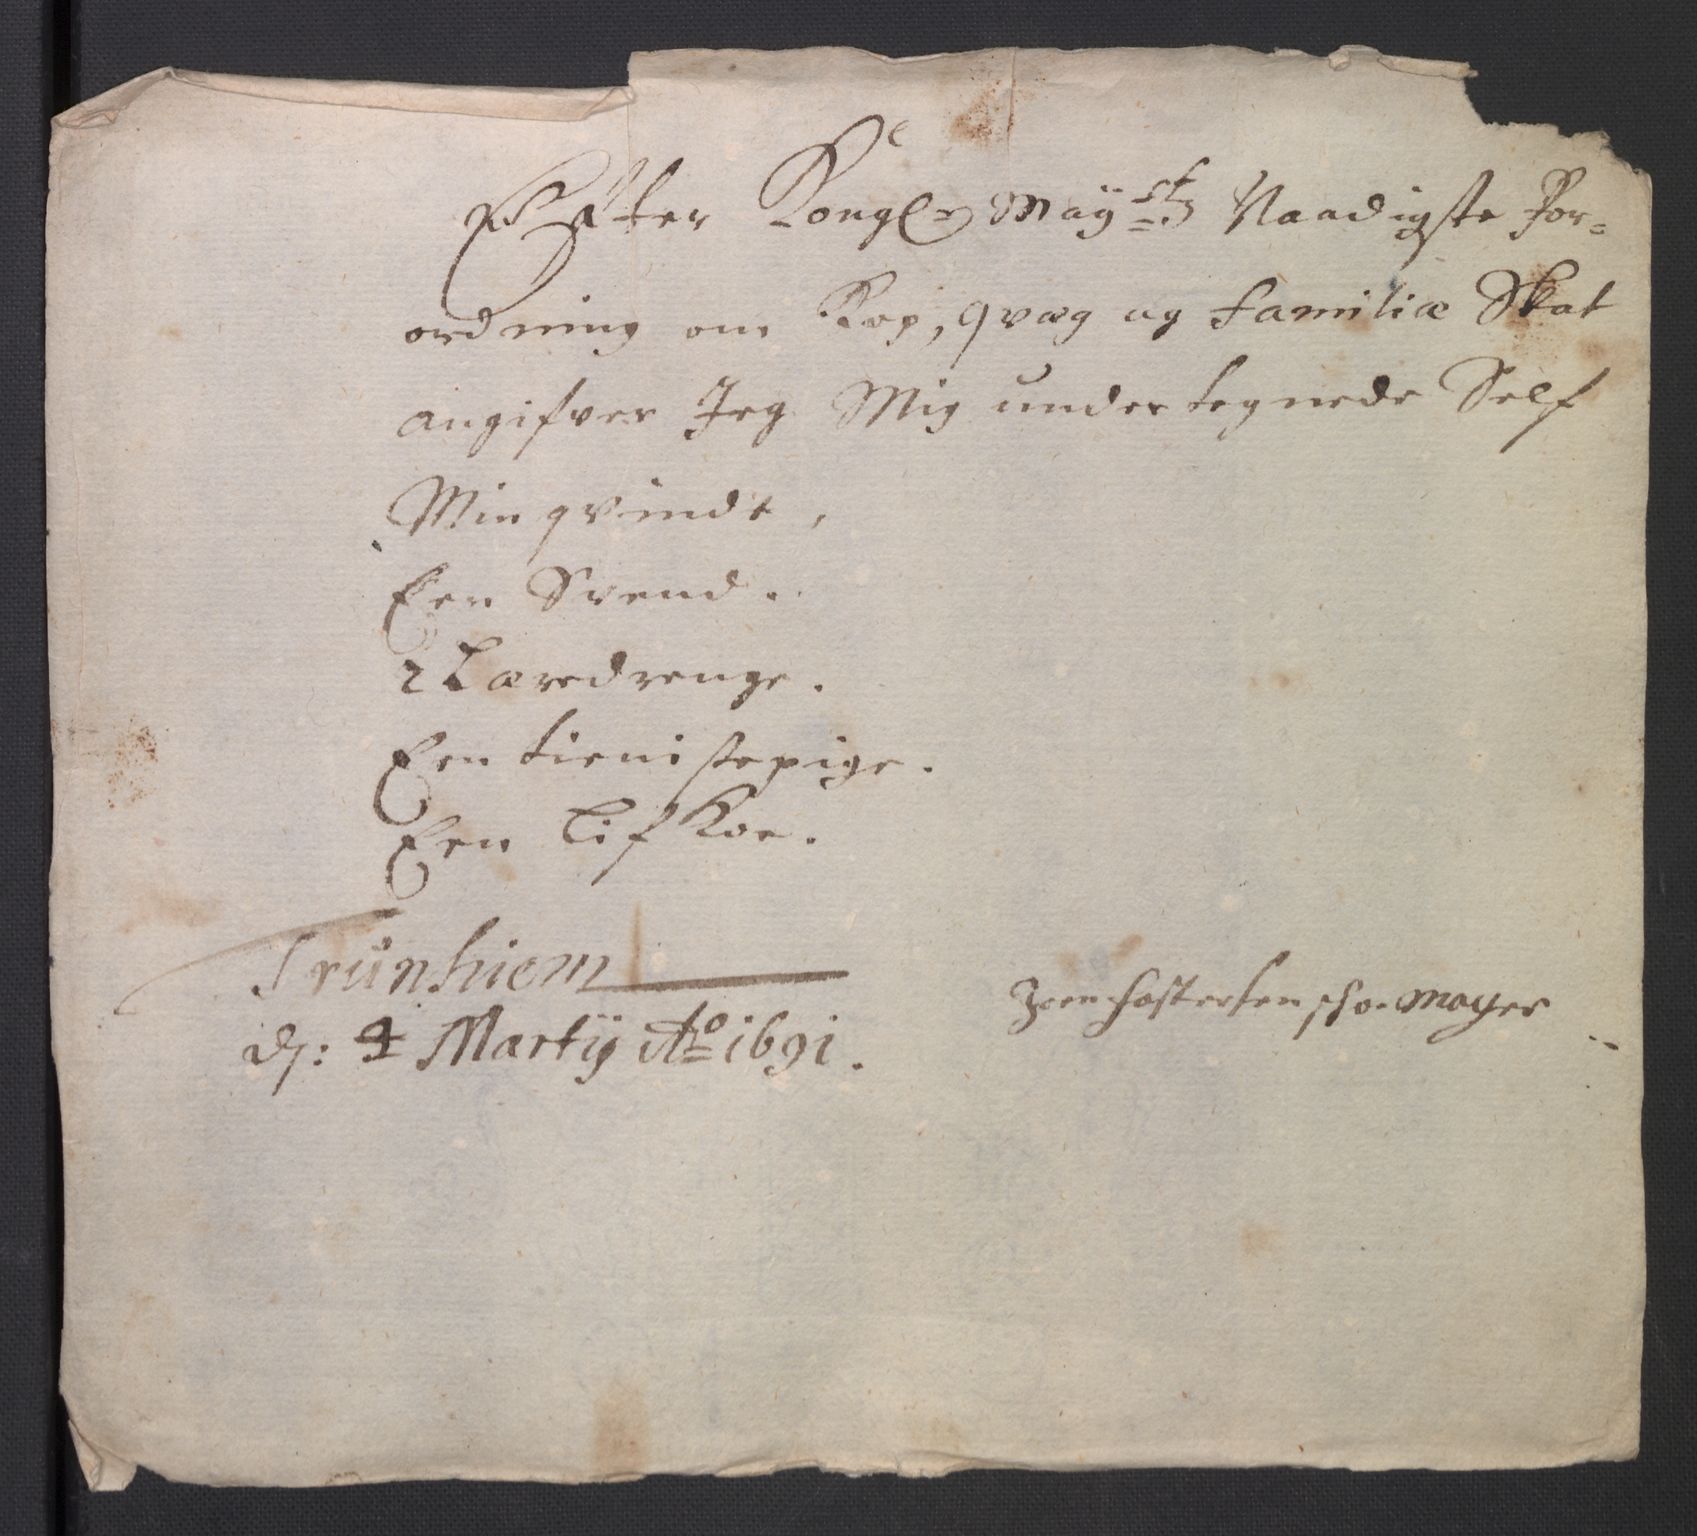 Efter Kongl: May:sts Naadigste For-
ordning om Kop, qvæg og familiæ Skat
angifver Jeg Mig undertegnede Self
Min qvinde,
Een Svend.
2 Læredrenge.
Een tienistepige.
Een Lif Koe.
Trünhiem
dſ: 4 Martij Ao 1691.
Mayer